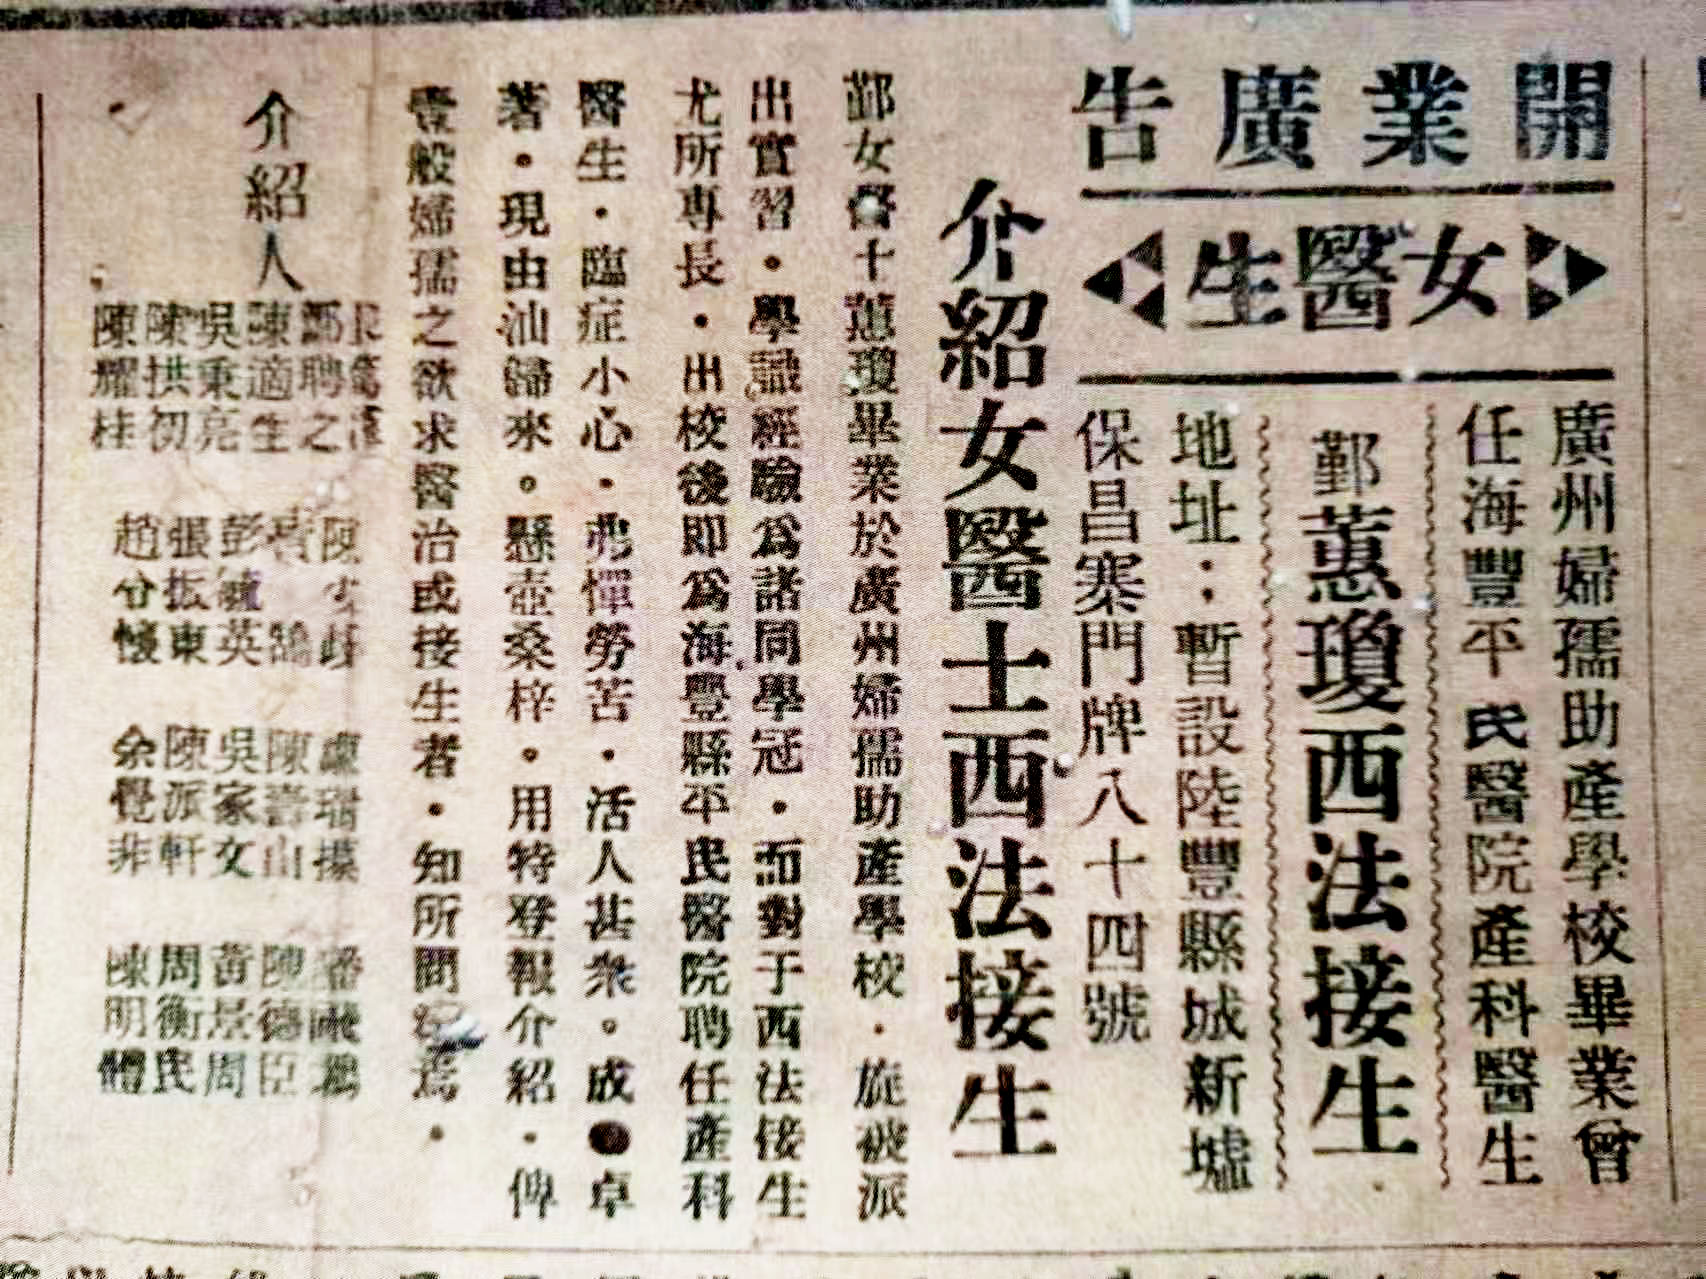 開業廣告
女醫生
廣州婦孺助產學校畢業曾
任海豐平民醫院產科醫生
鄞蕙瓊西法接生
地址：暫設陸豐縣城新墟
保昌寨門牌八十四號
介紹女醫士西法接生
鄞女醫士蕙瓊畢業於廣州婦孺助產學校．旋被派
出實習。學識經驗為諸同學冠．而對于西法接生
尤所專長．出校後即為海豐縣平民醫院聘任產科
醫生．臨症小心．弗憚勞苦．活人甚衆。成 卓
著．現由汕歸來。懸壺桑梓。用特登報介紹．俾
壹般婦孺之欲求醫治或接生者．知所問 焉．
介紹人
盧瑞
鄭聘之 陳壽山 陳德臣
陳適生
吳秉亮 彭 英 吳家文 黃景周
陳拱初 張振東 陳派軒 周衡民
陳耀桂 趙兮懷 余覺非 陳明體